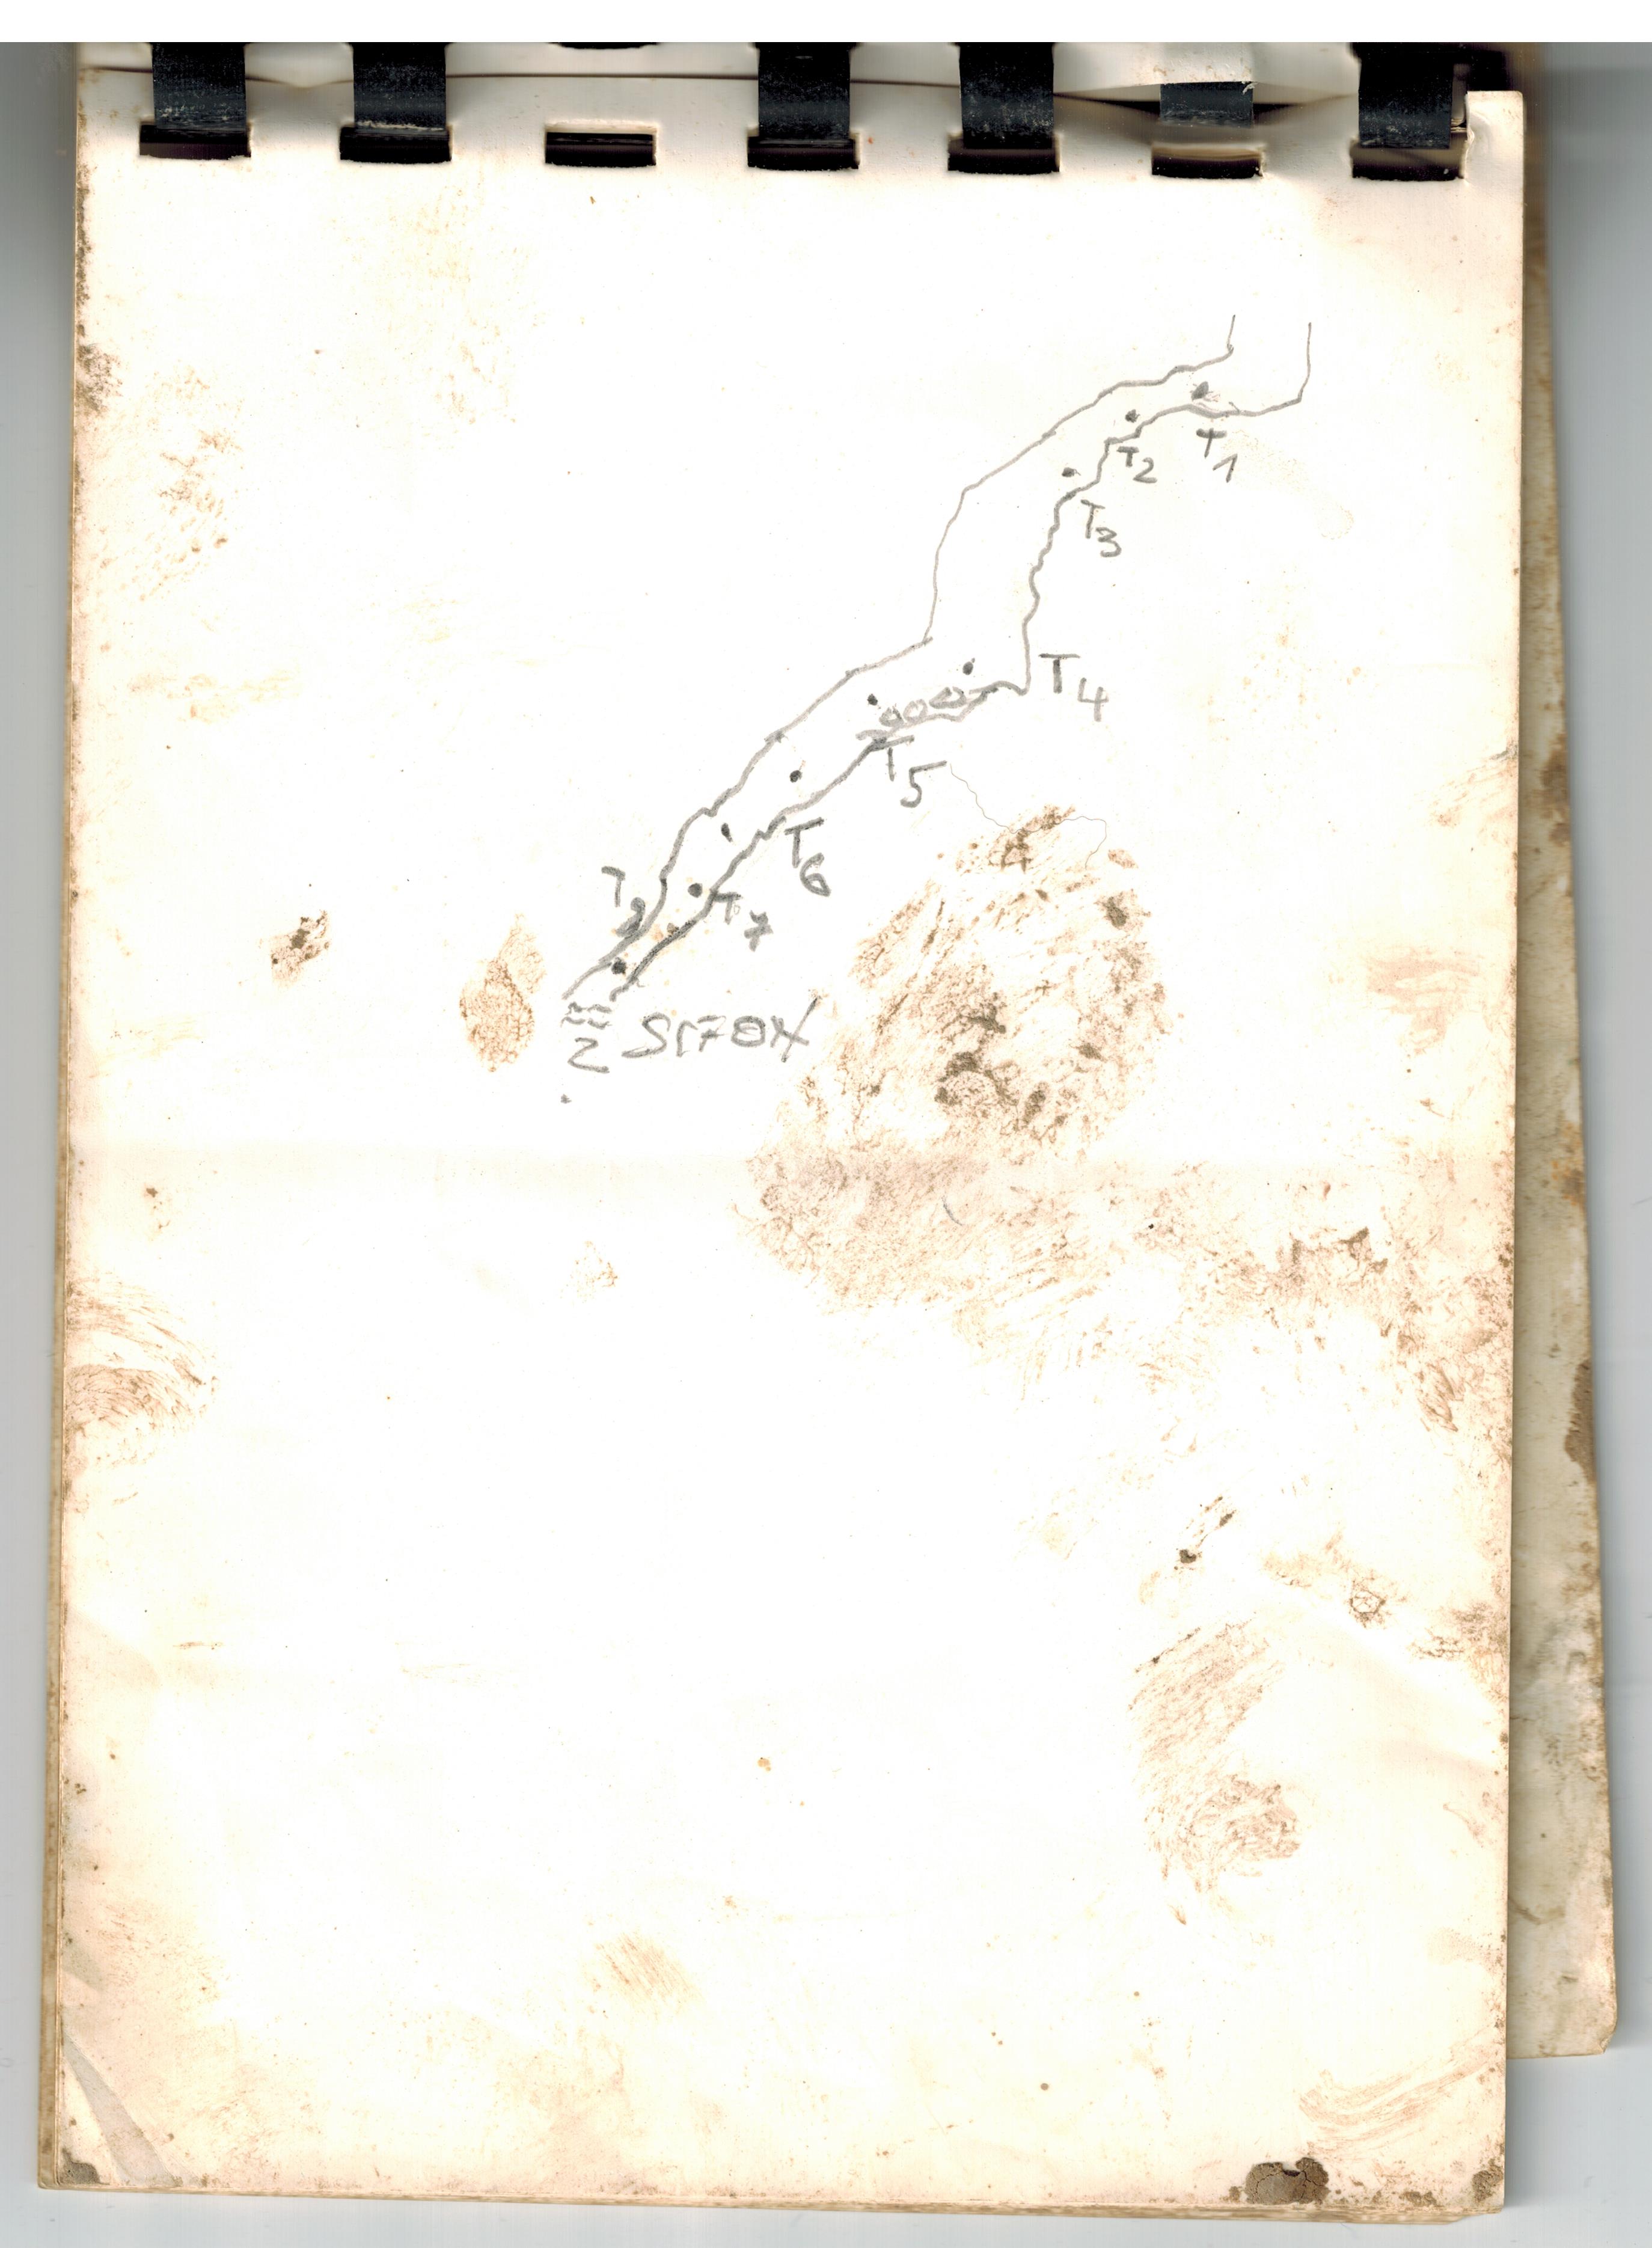 T1
T2
T3
T4
T5
T6
T7
2 SIFON